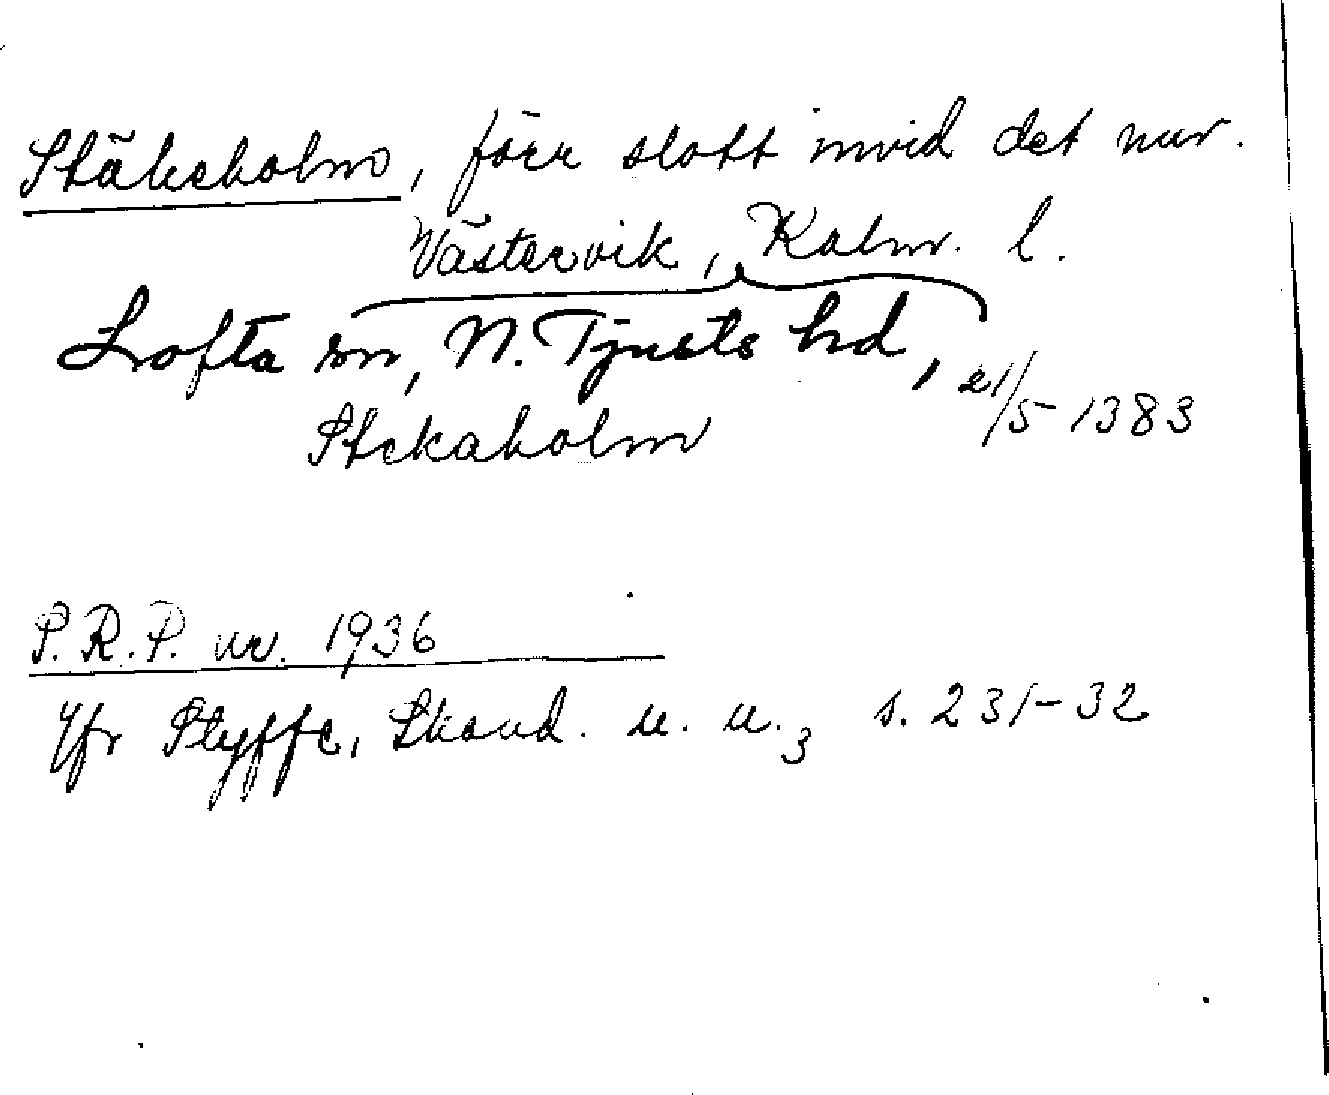 Stäkeholm, förr slott invid det nuv.
Västervik, Kalm. l.
Lofta sn, N. Tjusts hd,
Stekaholm 21/5 1383
S.R.P. nr. 1936
Jfr Styffe, Skand. u. u.3 s. 231-32